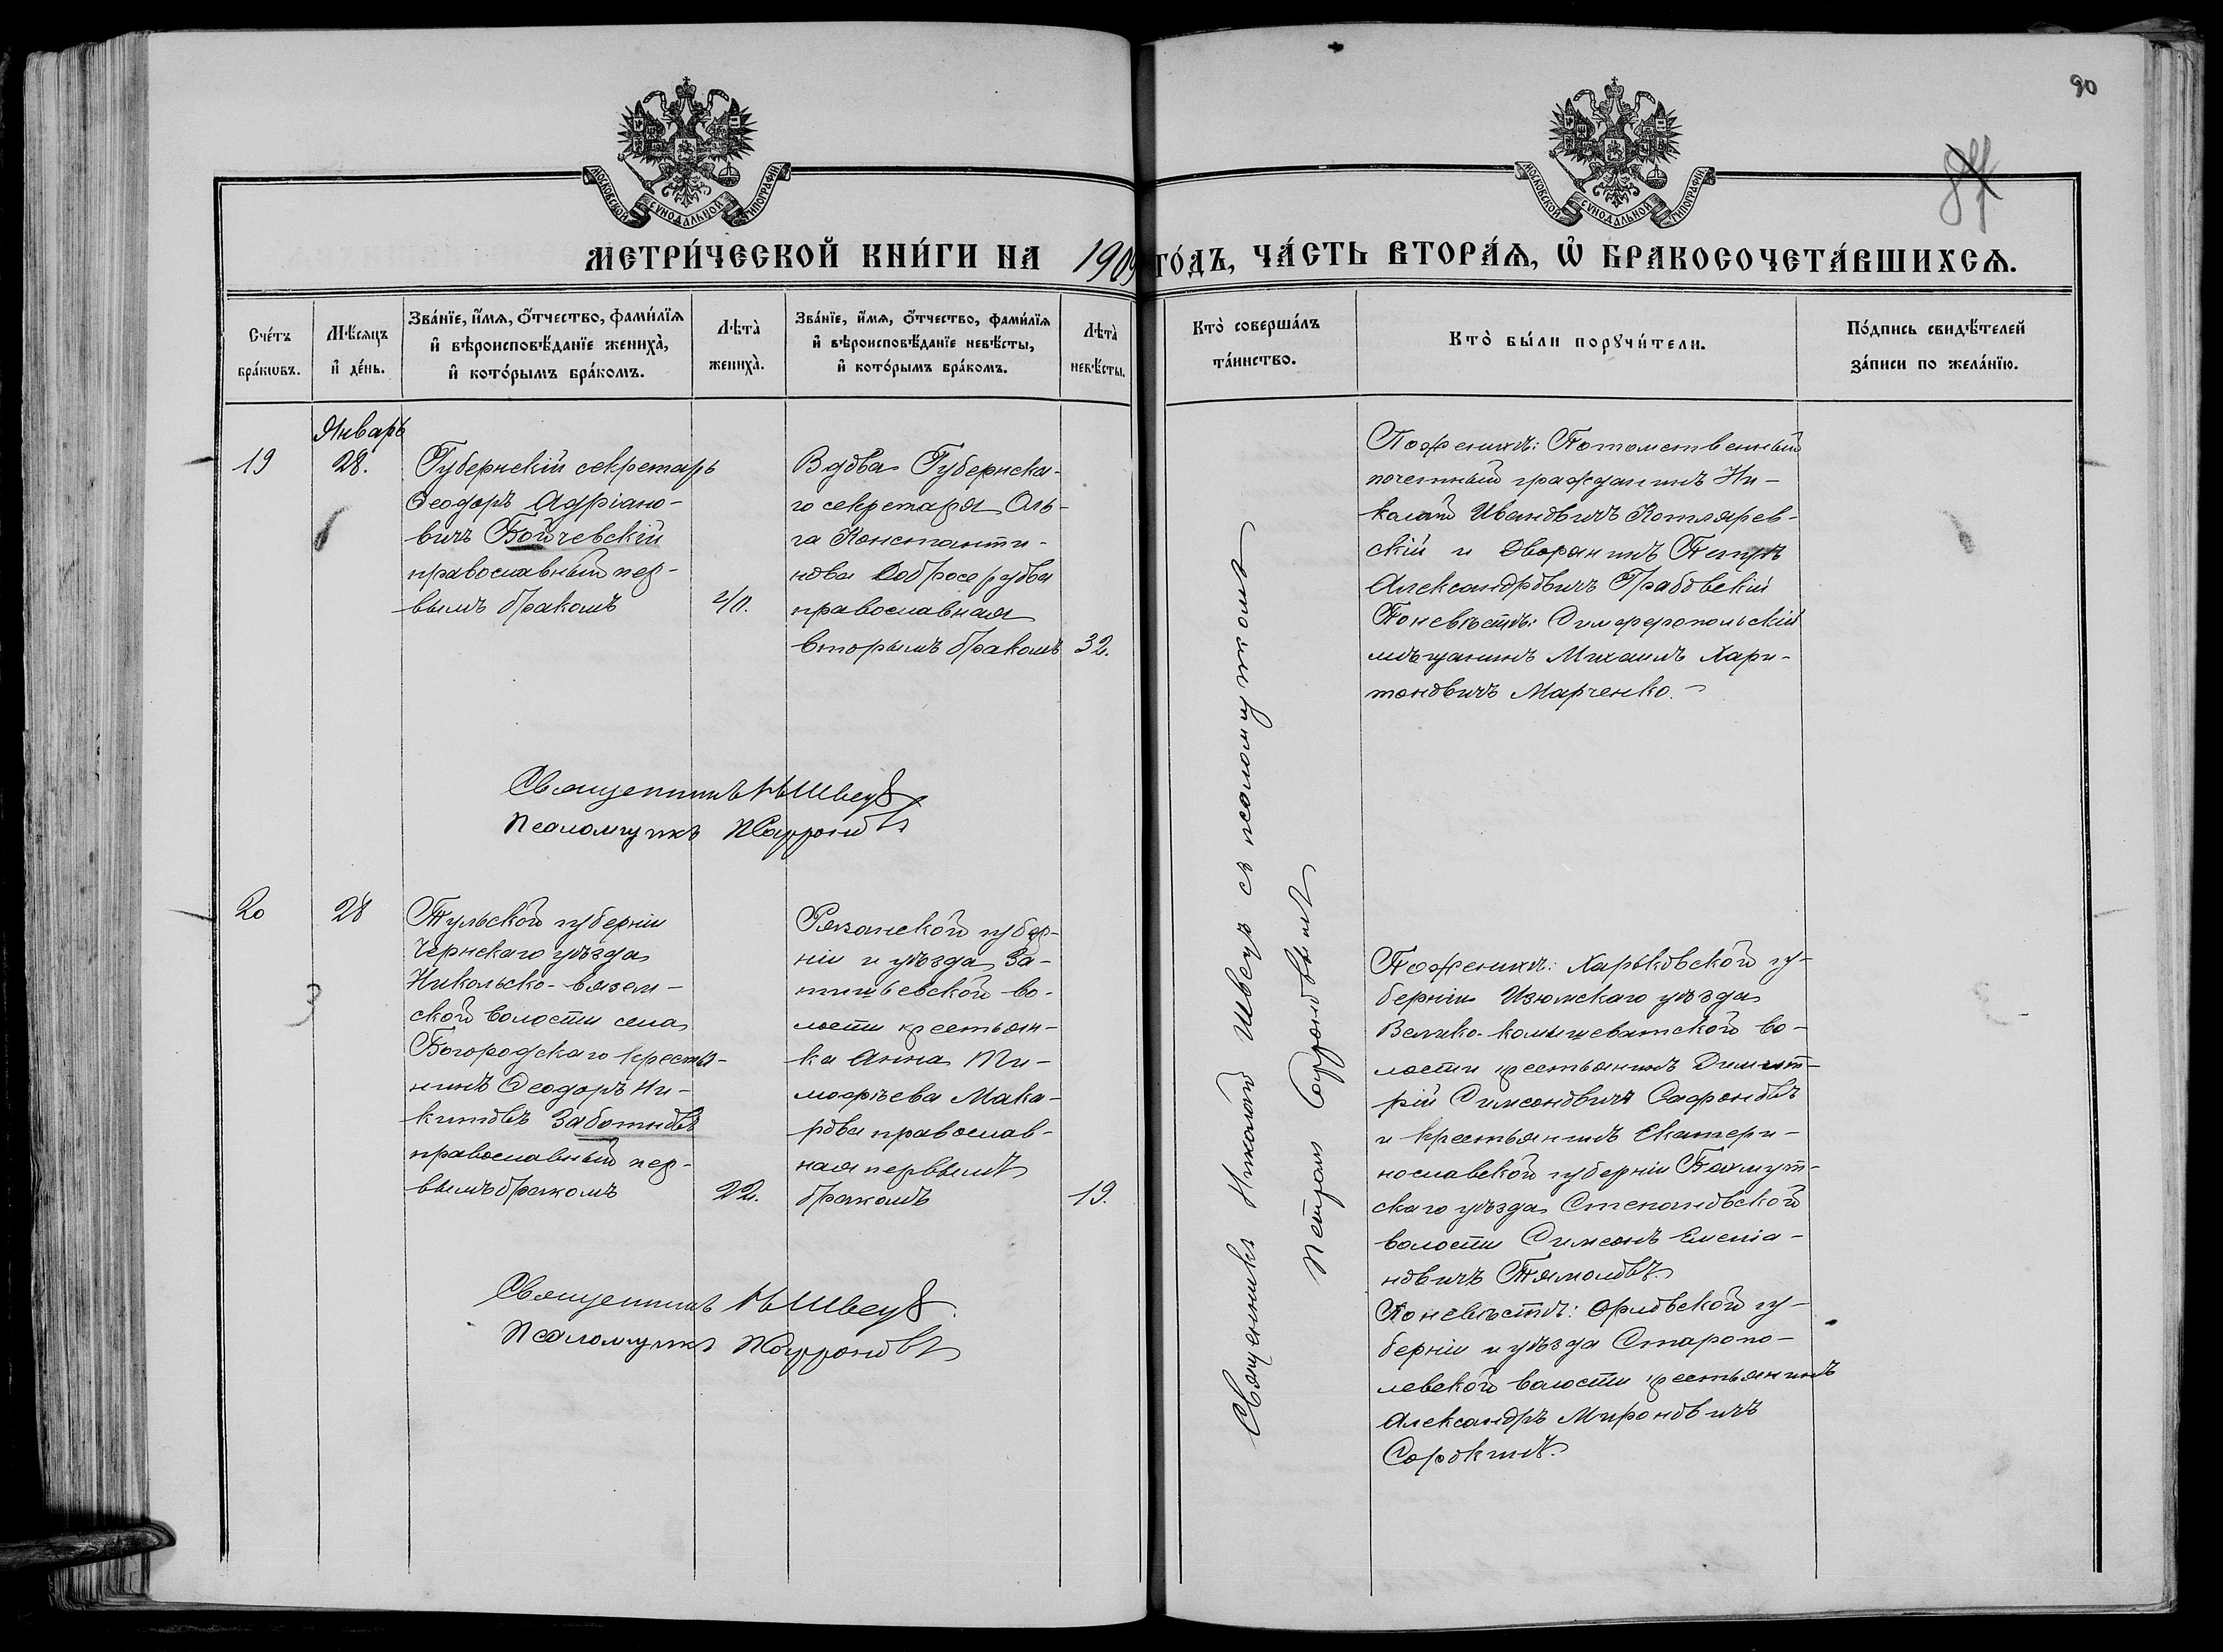 90
87
МОСКОВСКОЙ СѴНОДАЛЬНОЙ ТИПОГРАФІИ
МОСКОВСКОЙ СѴНОДАЛЬНОЙ ТИПОГРАФІИ
МЕТРИ́ЧЕСКОЙ КНИ́ГИ НА 1909 ГО́ДЪ, ЧА́СТЬ ВТОРА́Ѧ, Ѽ БРАКОСОЧЕТА́ВШИХСѦ.
Сче́тъ
бра́кѡвъ.
Мѣ́сяцъ
и҆ де́нь.
Зва́нїе, и҆́мѧ, ѻ҆́тчество, фами́лїѧ
и҆ вѣроисповѣ́данїе жениха̀,
и҆ кото́рымъ бра́комъ.
Лѣта̀
жениха̀.
Зва́нїе, и҆́мѧ, ѻ҆́тчество, фами́лїѧ
и҆ вѣроисповѣ́данїе невѣ́сты,
и҆ кото́рымъ бра́комъ.
Лѣта̀
невѣ́сты.
Кто̀ соверша́лъ
та́инство.
Кто̀ бы́ли порꙋчи́тели.
По́дпись свидѣ́телей
за́писи по жела́нїю.
Январь
19
28.
Губернскій секретарь
Ѳеодоръ Адріано-
вичъ Бойчевскій
православный пер-
вымъ бракомъ
40.
Вдова Губернска-
го секретаря Оль-
га Константи-
нова Добросердова
православная
вторымъ бракомъ
32.
По женихѣ: Потомственный
почетный гражданинъ Ни-
колай Ивановичъ Котлярев-
скій и Дворянинъ Петръ
Александровичъ Грабовскій
По невѣстѣ: Симферопольскій
мѣщанинъ Михаилъ Хари-
тоновичъ Марченко.
Священникъ Н Швецъ
Псаломщикъ П Сафроновъ
Священникъ Николай Швецъ съ псаломщикомъ
Петромъ Сафроновымъ
20
28
Тульской губерніи
Чернскаго уѣзда
Никольско-Вязем-
ской волости села
Богородскаго крестья-
нинъ Ѳеодоръ Ни-
китовъ Заботновъ
православный пер-
вымъ бракомъ
22.
Рязанской губер-
ніи и уѣзда За-
волости крестьян-
ка Анна Ти-
мофѣева Мака-
рова православ-
ная первымъ
бракомъ
19.
По женихѣ: Харьковской гу-
берніи Изюмскаго уѣзда
Велико-камышеватской во-
лости крестьянинъ Димит-
рій Симеоновичъ Сафоновъ
и крестьянинъ Екатери-
нославской губерніи Бахмут-
скаго уѣзда Степановской
волости Симеонъ Емелiа-
новичъ
По невѣстѣ: Орловской гу-
берніи и уѣзда Старопо-
левской волости крестьянинъ
Александръ Мироновичъ
Сорокинъ.
Священникъ Н Швецъ
Псаломщикъ П Сафроновъ